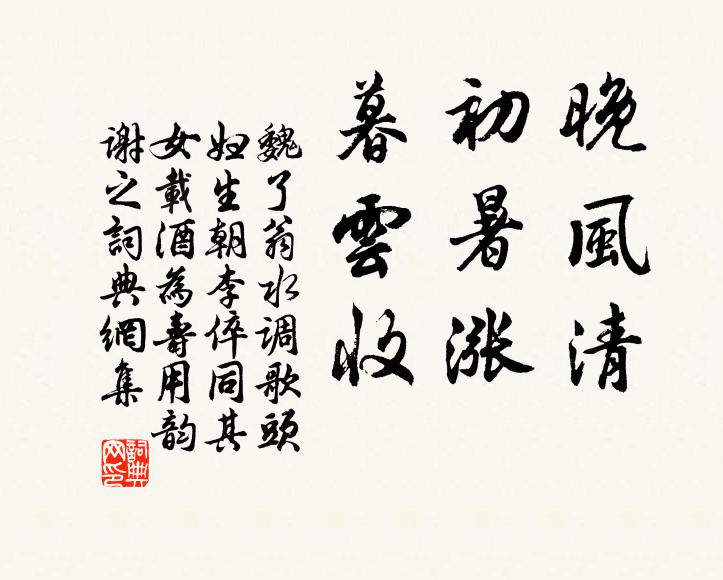 晚風清
初暑漲
暮雲收
魏了翁水调歌頭
妇生朝李倅同其
女載酒為壽用韵
谢之詞典網集
詞典網印